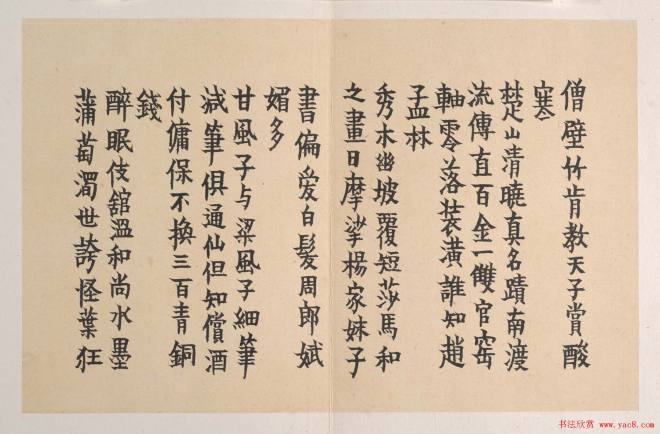 僧壁竹肯教天子賞酸
寒
楚山清曉真名蹟南渡
流傳直百金一雙官窑
軸零落裝潢誰知趙
孟林
秀木幽坡覆短莎馬和
之畫日摩挲楊家妹子
書偏爱白髮周郎斌
媚多
甘風子与梁風子細筆
减筆俱通仙但知償酒
付傭保不換三百青銅
錢
醉眠伎舘溫和尚水墨
蒲萄濁世誇怪葉狂
书法欣赏 www.yac8.com